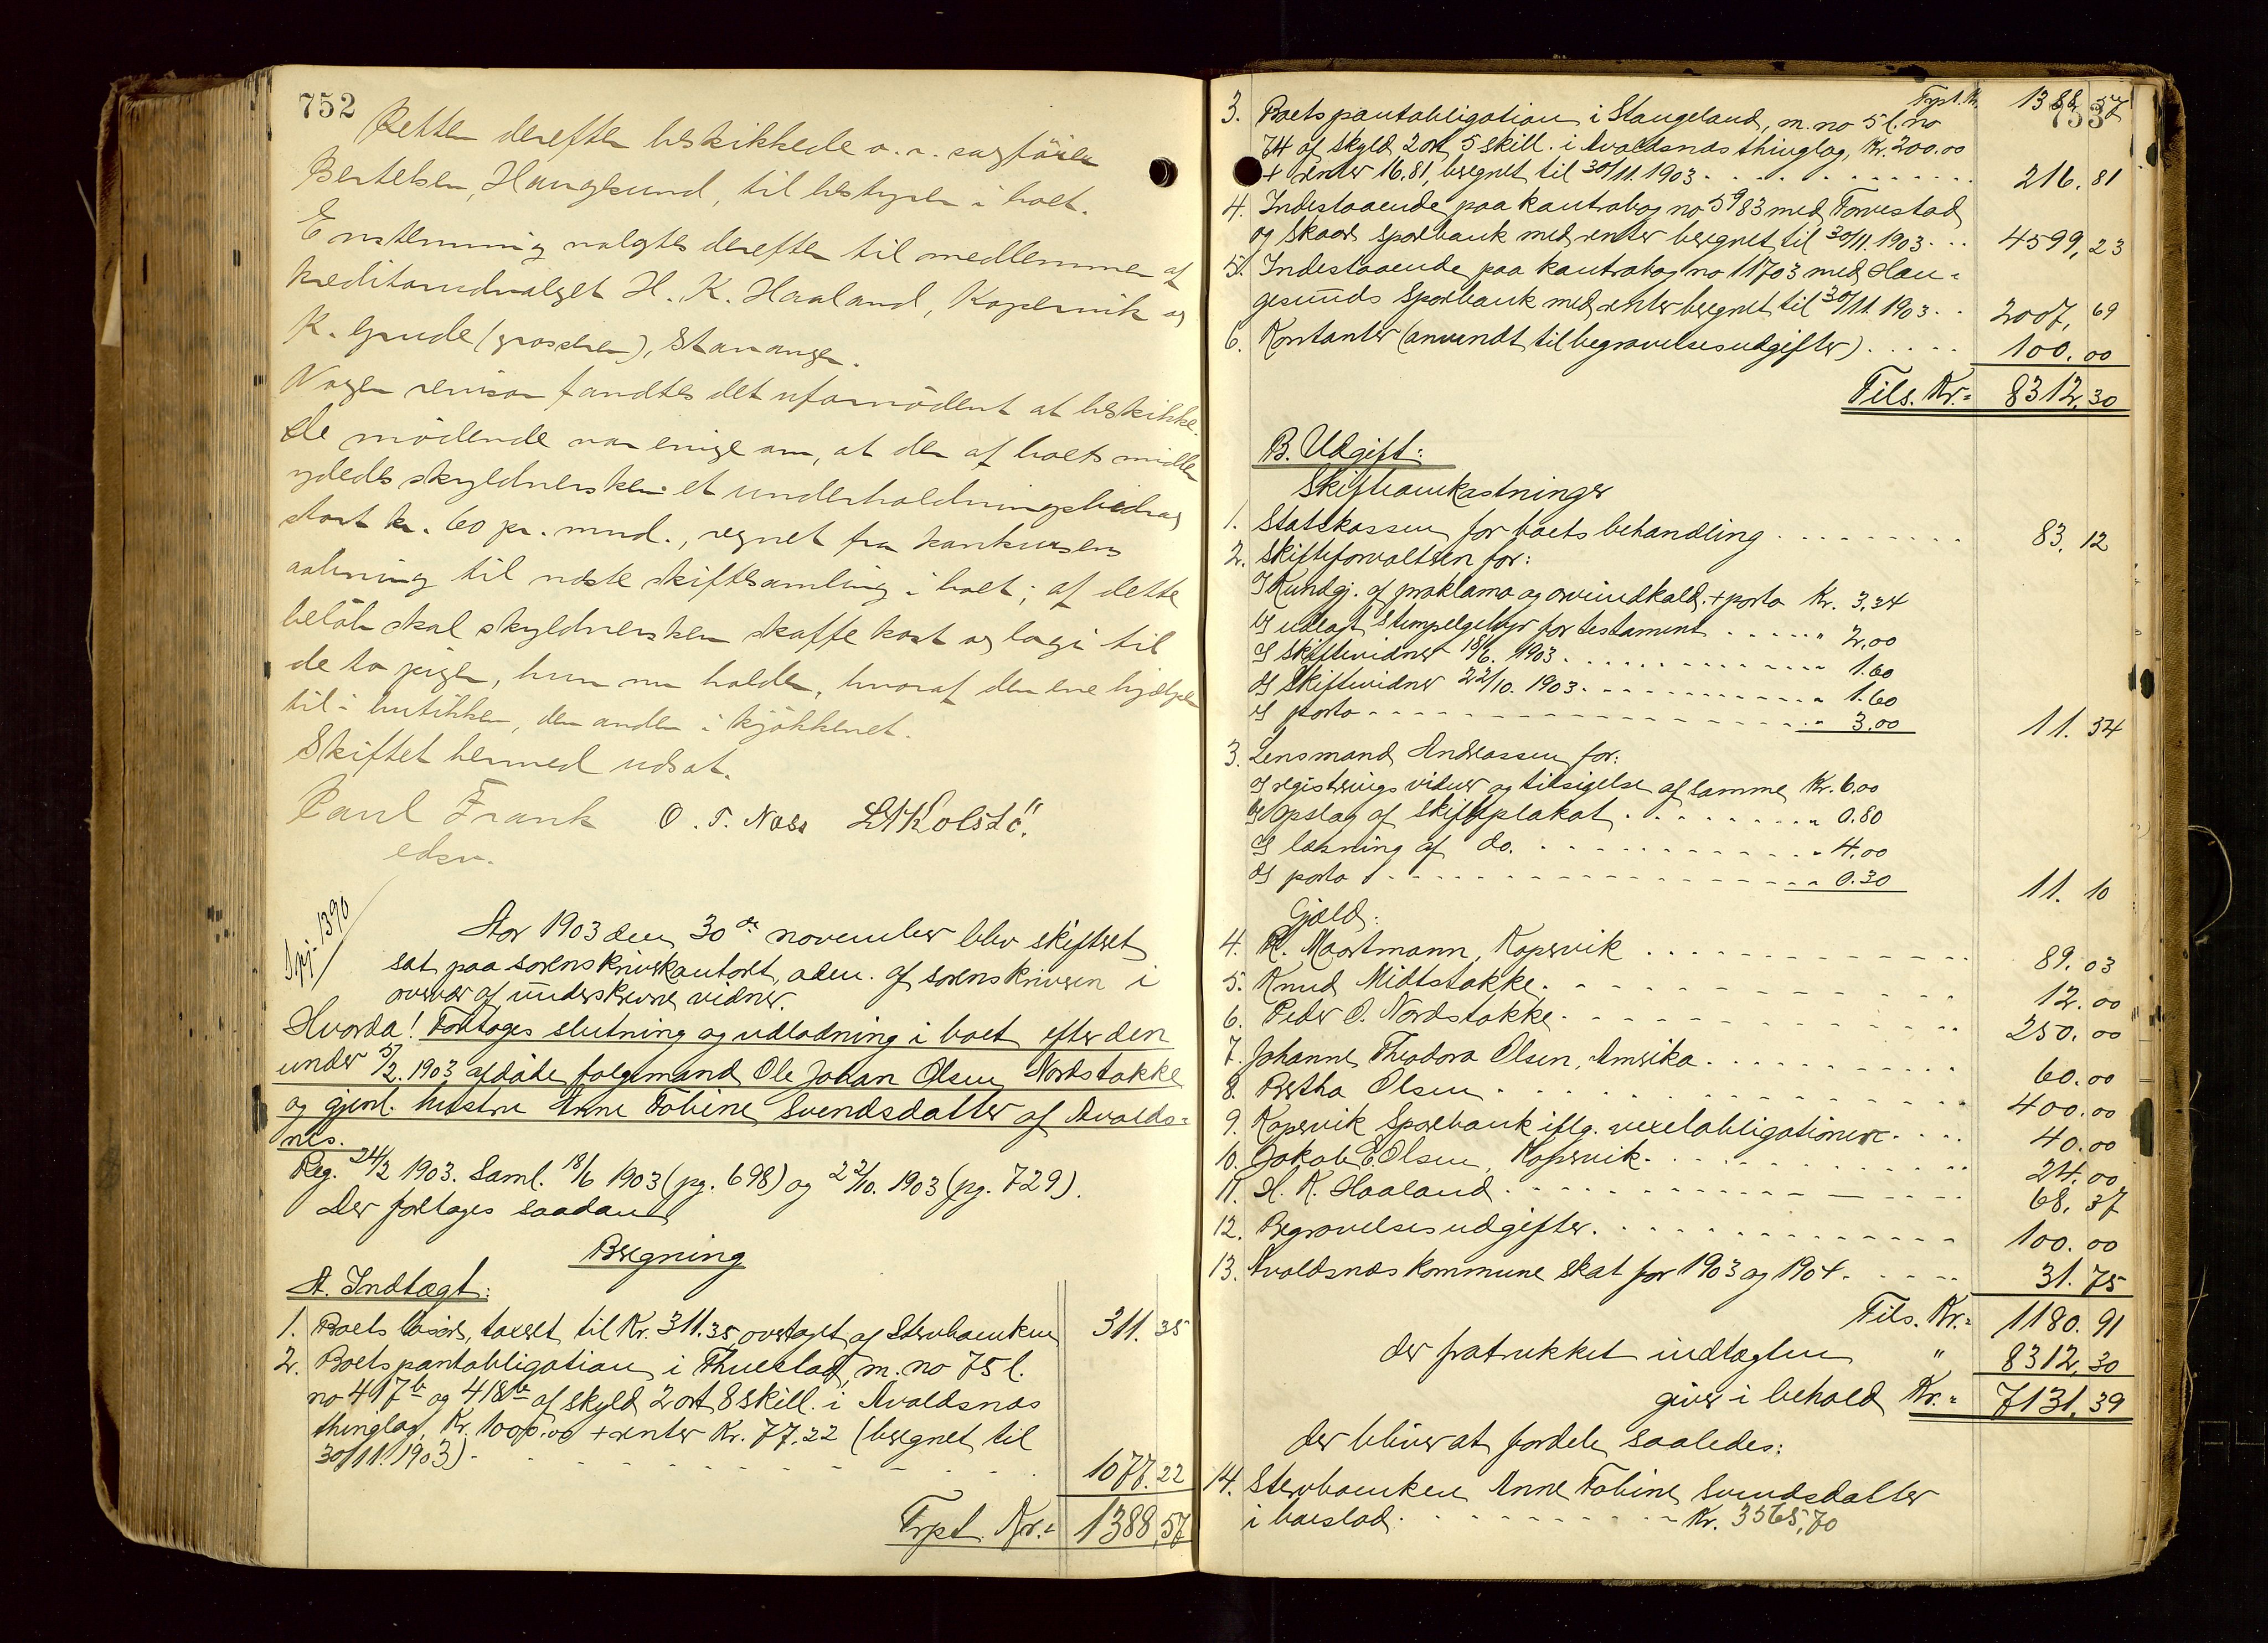 752
Retten derefter beskikkede o.r. sagfører
Bertelsen, Haugesund, til bestyrer i boet.
Enstemmig valgtes derefter til medlemmer af
kreditorudvalget H. K. Haaland, Kopervik og
K. Grude (grosserer), Stavanger.
Nogen revisor fandtes det ufornödent at beskikke.
De mödende var enige om, at der af boets midler
ydedes skyldnersken et underholdningsbidrag
stort kr. 60 pr. mnd., regnet fra konkursens
aabning til næste skiftesamling i boet; af dette
beløb skal skyldnersken skaffe kost og logi til
de to piger, hun nu holder, hvoraf den ene hjælper
til i butikken, den anden i kjökkenet.
Skiftet hermed udsat.
Paul Frank O. T. Næss L. Kolstö.
edsv.
Spj. 1390
Aar 1903 den 30de november blev skifteret
sat paa sorenskriverkontoret, adm. af sorenskriveren i
overvær af underskrevne vidner.
Hvorda! Foretages slutning og udlodning i boet efter den
under 5/2. 1903 afdöde folgemand Ole Johan Olsen Nordstokke
og gjenl. hustru Anne Tobine Svendsdatter af Avalds-
nes.
Reg. 24/2 1903. Saml. 18/6 1903 (pg. 698) og 22/10. 1903 (pg. 729).
Der foretages saadan
Beregning
A. Indtægt:
1. Boets lösöre, taxeret til Kr. 311.35 overtaget af Stervboenken 311.35
2. Boets pantobligation i Thuestad, m. no 75 l.
no 417b og 418b af skyld 2 ort 8 skill. i Avaldsnæs
thinglag, Kr. 1000.00 + renter Kr. 77.22 (beregnet til
30/11. 1903) 1077.22
Trpt. Kr.= 1388,57
753
Trpt. Kr. 1388,57
3. Boets pantobligation i Stangeland, m. no 5 l. no
74 af skyld 2 ort 5 skill. i Avaldsnæs thinglag, Kr. 200.00
+ renter 16.81, beregnet til 30/11. 1903 216.81
4. Indestaaende paa kontrabog no 5983 med Torvestad
og Skaare sparebank med renter beregnet til 30/11. 1903 4599,23
5. Indestaaende paa kontrabog no 11703 med Hau-
gesunds Sparebank med renter beregnet til 30/11. 1903 2007,69
6. Kontanter (anvendt til begravelsesudgifter) 100.00
Tils. Kr.= 8312,30
B. Udgift:
Skifteomkostninger
1. Statskassen for boets behandling 83.12
2. Skifteforvalteren for:
a) Kundgj. af proklama og arveindkald. + porto Kr. 3.34
b) udlagt Stempelgebyr for testament " 2.00
c) Skiftevidner 18/6. 1903 " 1.60
d) Skiftevidner 22/10. 1903 " 1.60
e) porto " 3.00 11.34
3. Lensmand Andreassen for:
a) registreringsvidner og tilsigelse af samme Kr. 6.00
b) Opslag af Skifteplakat " 0.80
c) læsning af do. " 4.00
d) porto " 0.30 11.10
Gjæld:
4. R. Moortmann, Kopervik 89.03
5. Knud Midtstokke 12.00
6. Peder O. Nordstokke 250.00
7. Johanne Theodora Olsen, Amerika 60.00
8. Bertha Olsen 400.00
9. Kopervik Sparebank iflg. vexelobligationer 40.00
10. Jakob E Olsen, Kopervik 24.00
11. H. K. Haaland 68.37
12. Begravelsesudgifter 100.00
13. Avaldsnæs kommune skat for 1903 og 1904 31.75
Tils. Kr.= 1180.91
der fratrukket indtægten " 8312,30
giver i behold Kr.= 7131,39
der bliver at fordele saaledes:
14. Stervboenken Anne Tobine Svendsdatter
i boeslod Kr. 3565,70